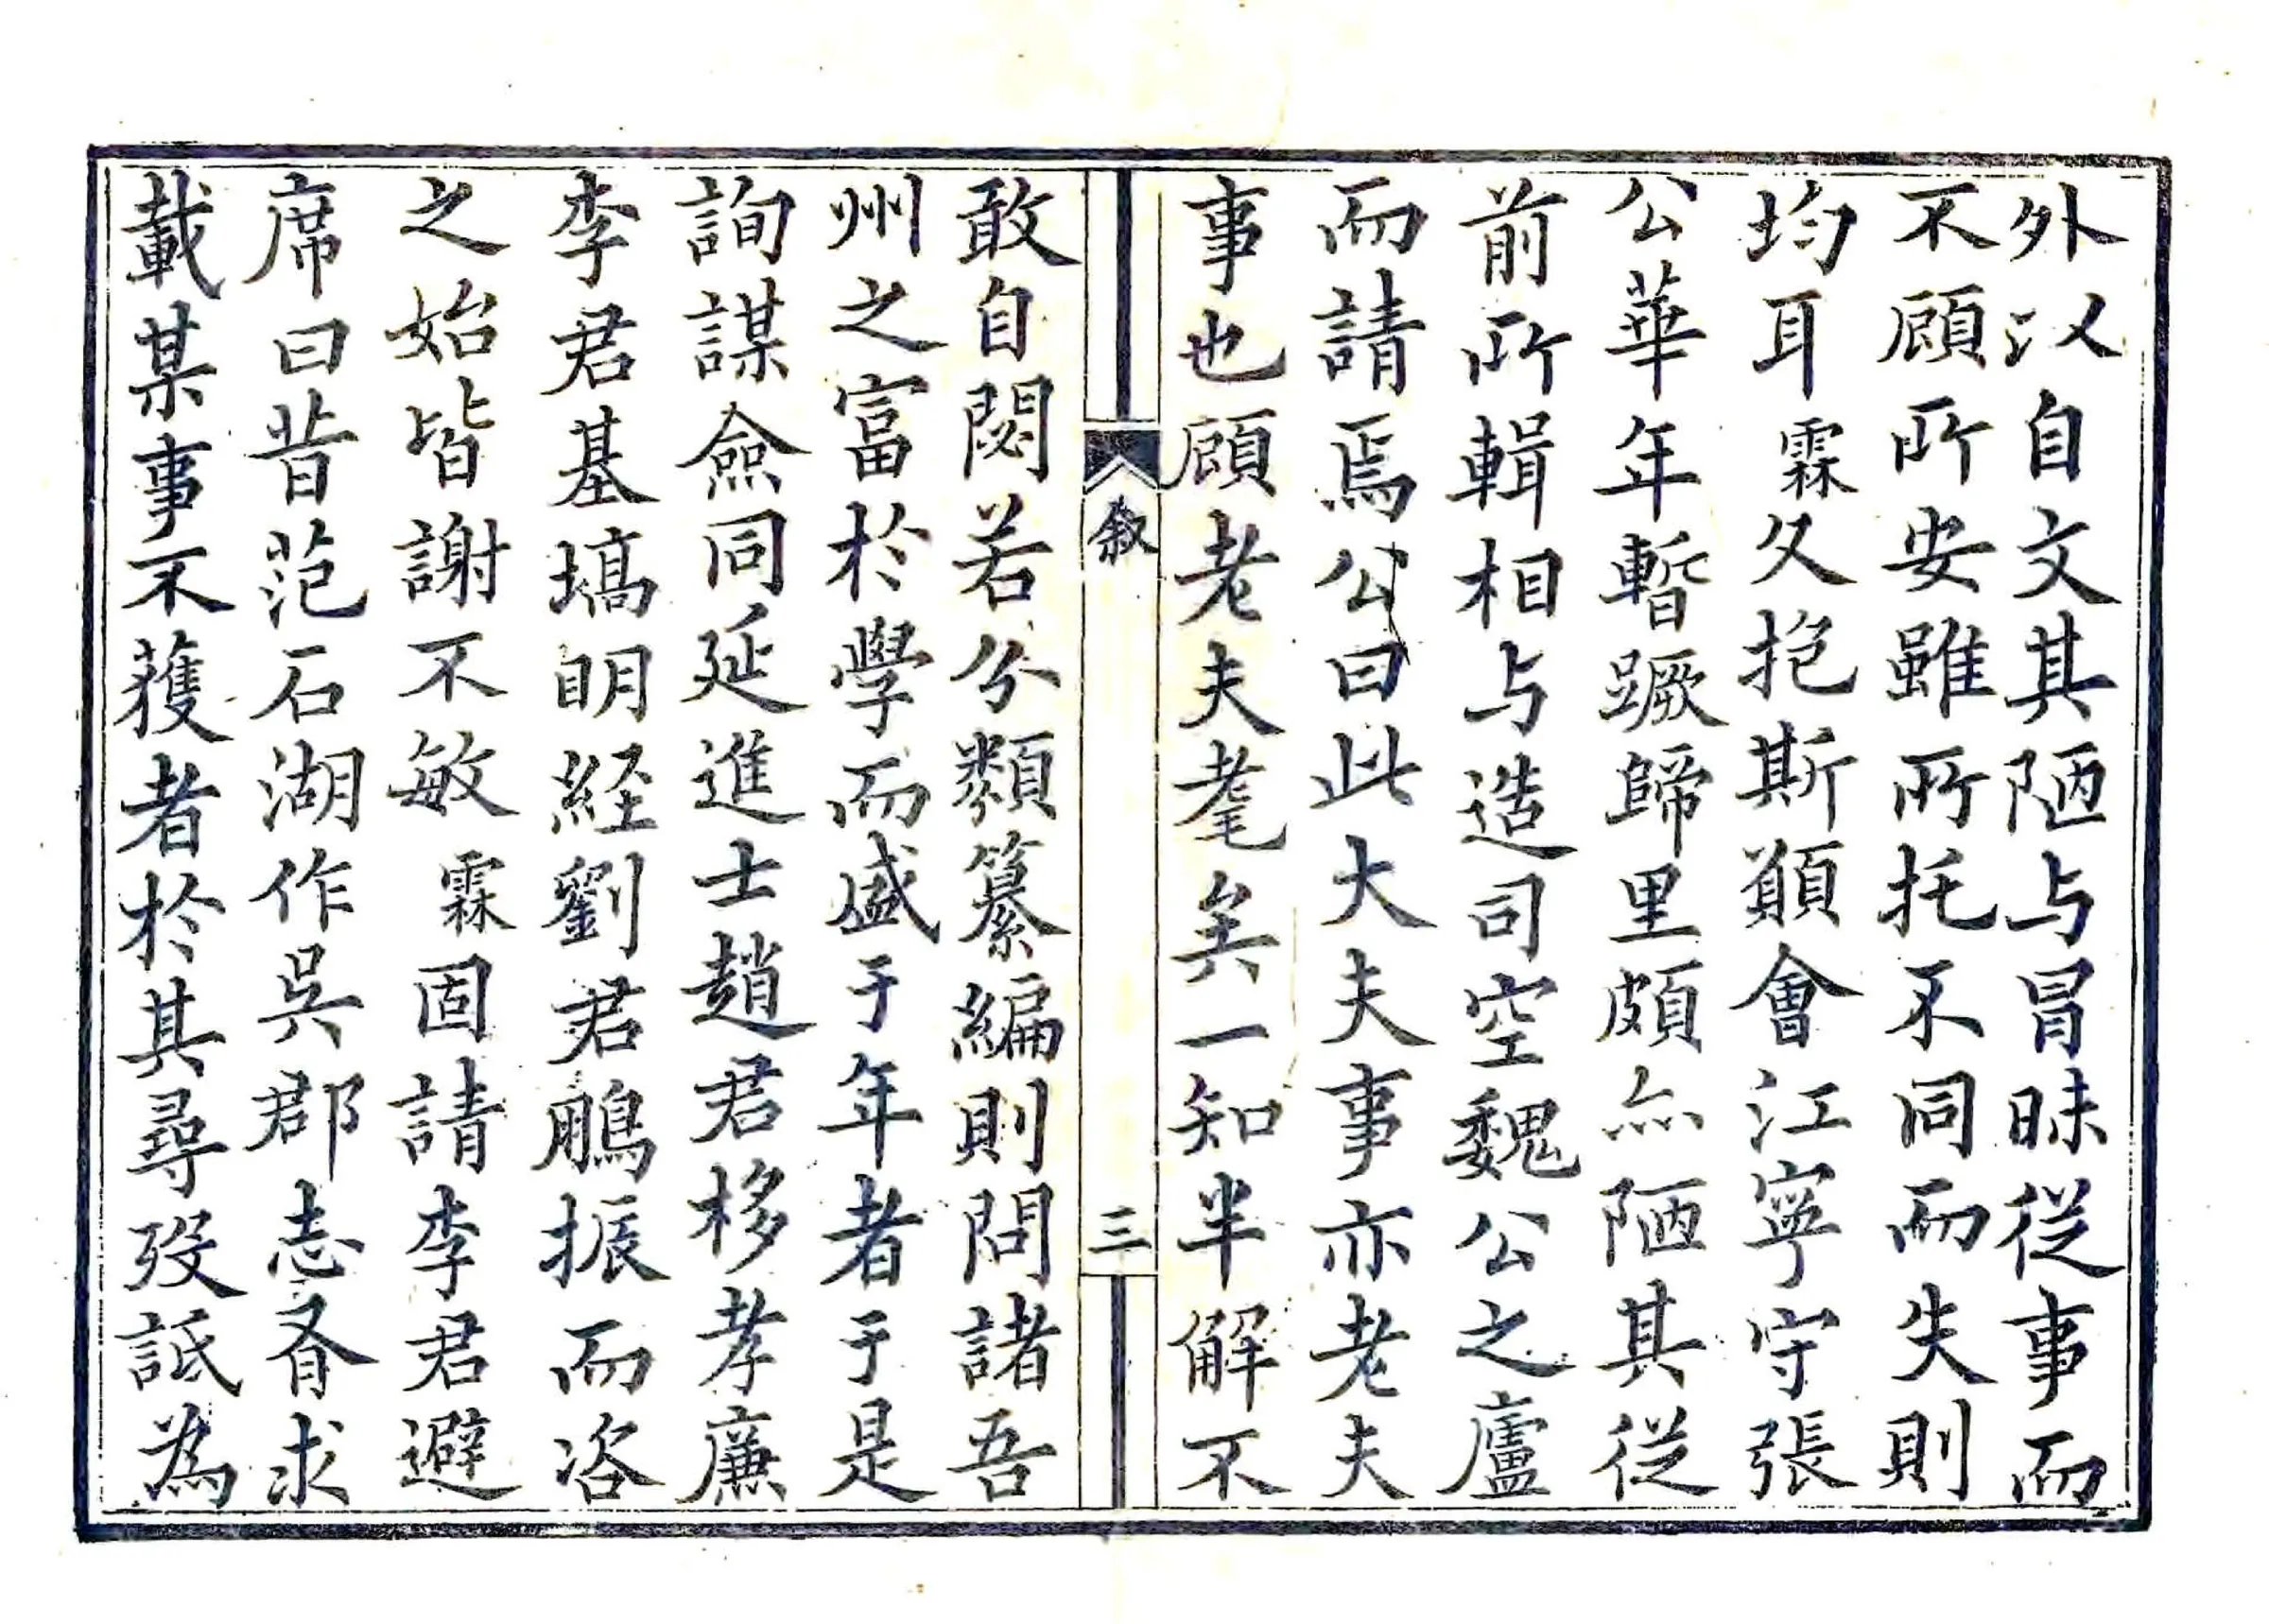 外以自文其陋与冒昧從事而
不顧所安雖所托不同而失則
均耳霖久抱斯願會江寧守張
公華年暫蹶歸里頗亦陋其從
前所輯相与造司空魏公之廬
而請焉公曰此大夫事亦老夫
事也顧老夫耄矣一知半解不
叙
三
敢自閟若分類纂編則問諸吾
州之富於學而盛于年者于是
詢謀僉同延進士趙君栘孝廉
李君基塙明經劉君鵰振而咨
之始皆謝不敏霖固請李君避
席曰昔范石湖作吳郡志有求
載某事不獲者於其尋歿詆為